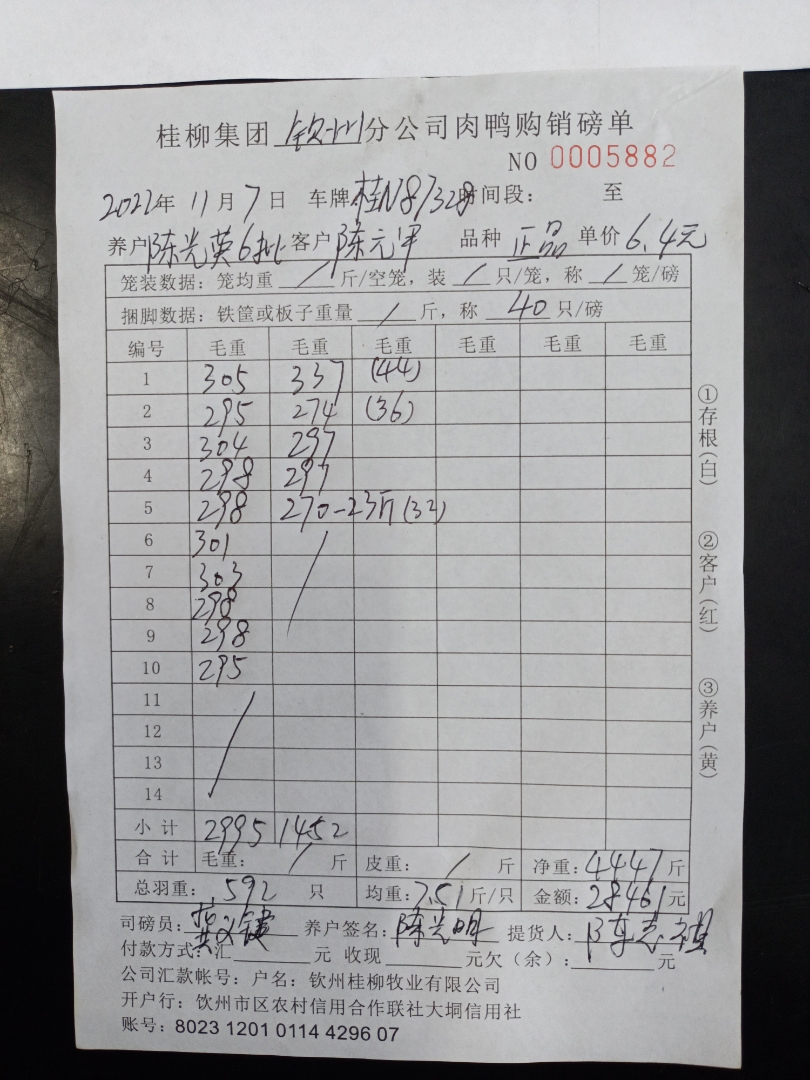 桂柳集团 钦州 分公司肉鸭购销磅单
NO 0005882
2022年 11月 7日 车牌 桂N87328 时间段： 至
养户 陈光英6批 客户 陈元军 品种 正品 单价 6.4元
笼装数据：笼均重 / 斤/空笼，装 / 只/笼，称 / 笼/磅
捆脚数据：铁筐或板子重量 / 斤，称 40 只/磅
编号 毛重 毛重 毛重 毛重 毛重 毛重
1 305 337 (44)
2 295 274 (36)
3 304 297
4 298 297
5 298 270-23斤(32)
6 301
7 303
8 298
9 298
10 295
11
12
13
14
小计 2995 1452
合计 毛重： / 斤 皮重： / 斤 净重：4447斤
总羽重：592 只 均重：7.51斤/只 金额：28461元
司磅员： 养户签名：陈光明 提货人：陈志祺
付款方式：汇 元 收现 元欠（余）： 元
公司汇款帐号：户名：钦州桂柳牧业有限公司
开户行：钦州市区农村信用合作联社大垌信用社
账号：8023 1201 0114 4296 07
①存根(白)
②客户(红)
③养户(黄)